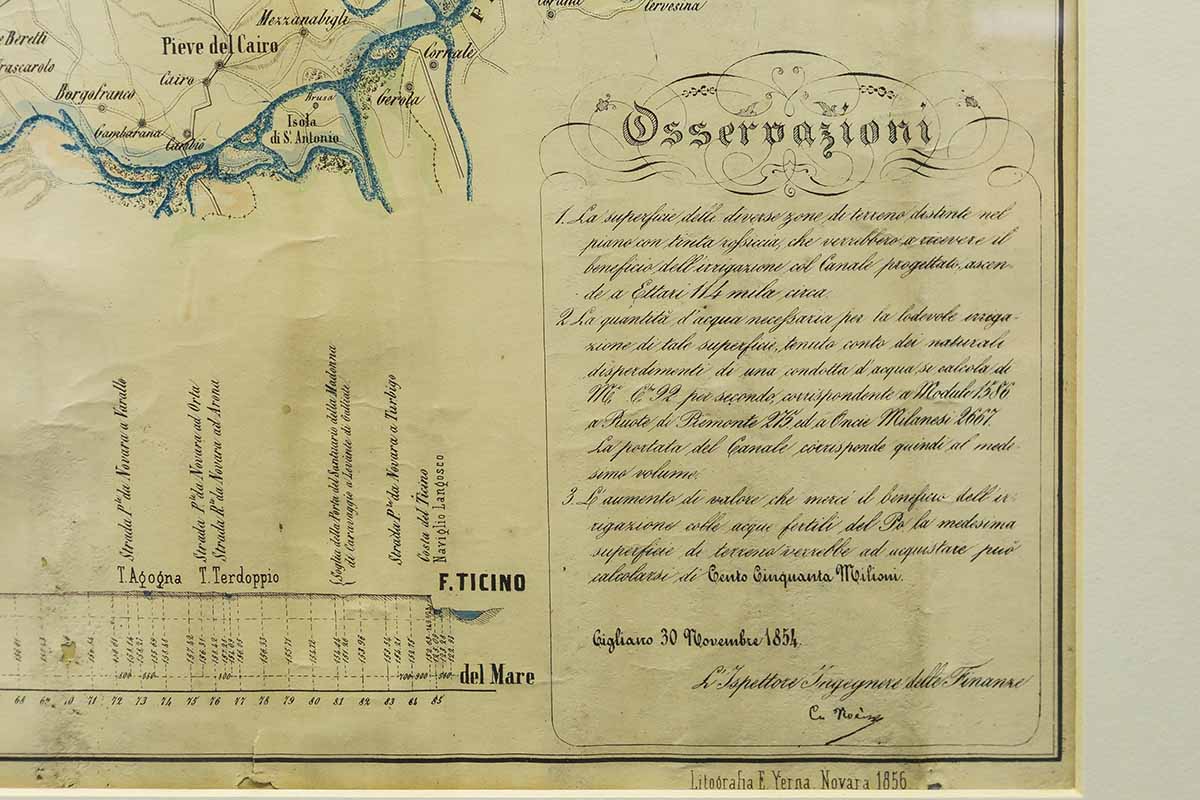 Mezzanabigli
Pieve del Cairo
Cornale
Cairo
Borgofranco
Gerola
Brusa
Isola
di S. Antonio
Gambarana
Cambiò
Osservazioni
1. La superficie delle diverse zone di terreno distinte nel
piano con tinta rossiccia, che verrebbero a ricevere il
beneficio dell'irrigazione col Canale progettato, ascen-
de a Ettari 114 mila circa.
2. La quantità d'acqua necessaria per la lodevole irriga-
zione di tale superficie, tenuto conto dei naturali
disperdimenti di una condotta d'acqua si calcola di
M.i C.i 92 per secondo, corrispondente a Moduli 1586
a Ruote di Piemonte 275, ed a Oncie Milanesi 2667.
La portata del Canale corrisponde quindi al mede-
simo volume.
3. L'aumento di valore che mercè il beneficio dell'ir-
rigazione colle acque fertili del Po la medesima
superficie di terreno verrebbe ad acquistare può
calcolarsi di Cento Cinquanta Milioni.
Cigliano 30 Novembre 1854.
L'Ispettore Ingegnere delle Finanze
Strada P.le da Novara a Varallo
Strada P.le da Novara ad Orta
Strada R.le da Novara ad Arona
Soglia della Porta del Santuario della Madonna
di Caravaggio a Levante di Galliate
Strada P.le da Novara a Turbigo
Costa del Ticino
Naviglio Langosco
T. Agogna
T. Terdoppio
F. TICINO
del Mare
68 69 70 71 72 73 74 75 76 77 78 79 80 81 82 83 84 85
Litografia F. Yerna, Novara 1856